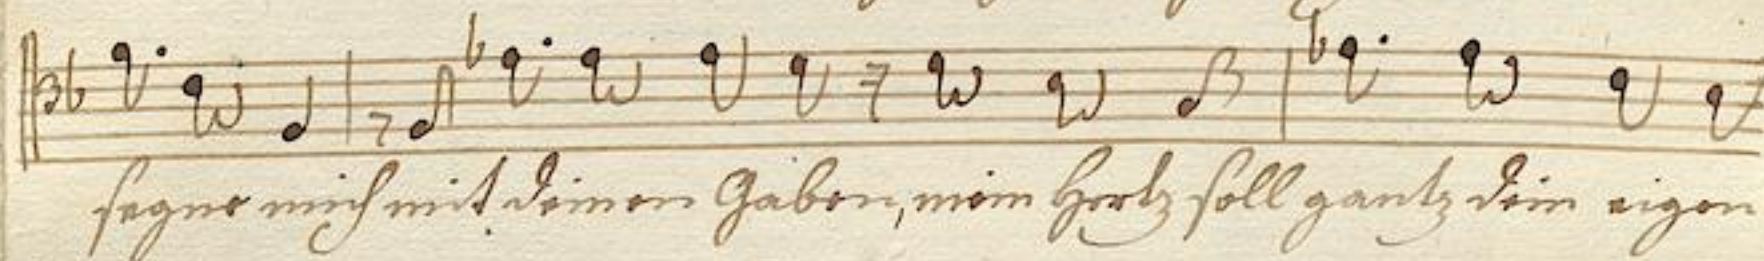 segne mich mit deinen Gaben, mein Hertz soll gantz dein eigen